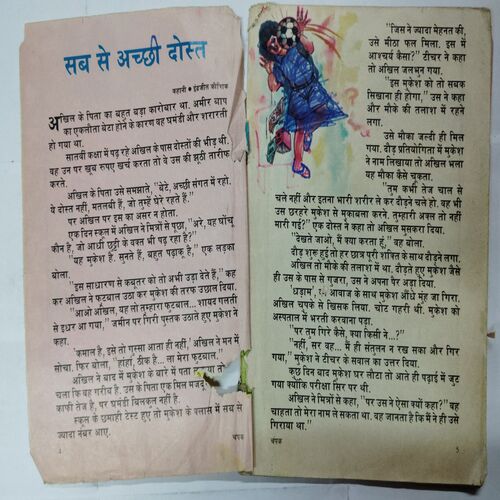 सब से अच्छी दोस्त
कहानी • इंद्रजीत कौशिक
अखिल के पिता का बहुत बड़ा कारोबार था. अमीर बाप
का एकलौता बेटा होने के कारण वह घमंडी और शरारती
हो गया था.
सातवीं कक्षा में पढ़ रहे अखिल के पास दोस्तों की भीड़ थी.
वह उन पर खूब रुपए खर्च करता तो वे उस की झूठी तारीफ
करते.
अखिल के पिता उसे समझाते, "बेटे, अच्छी संगत में रहो.
ये दोस्त नहीं, मतलबी हैं, जो तुम्हें घेरे रहते हैं."
पर अखिल पर इस का असर न होता.
एक दिन स्कूल में अखिल ने मित्रों से पूछा, "अरे, यह घोंचू
कौन है, जो आधी छुट्टी के वक्त भी पढ़ रहा है?"
"यह मुकेश है. सुनते हैं, बहुत पढ़ाकू है," एक लड़का
बोला.
"इस साधारण से कबूतर को तो अभी उड़ा देते हैं," कह
कर अखिल ने फुटबाल उठा कर मुकेश की तरफ उछाल दिया.
"आओ अखिल, यह लो तुम्हारा फुटबाल... शायद गलती
से इधर आ गया," जमीन पर गिरी पुस्तक उठाते हुए मुकेश ने
कहा.
'कमाल है, इसे तो गुस्सा आता ही नहीं,' अखिल ने मन में
सोचा. फिर बोला, "हांहां, ठीक है... ला मेरा फुटबाल."
अखिल ने बाद में मुकेश के बारे में पता
चला कि वह गरीब है. उस के पिता एक मिल मजदूर
काफी तेज है, पर घमंडी बिलकुल नहीं है.
स्कूल के छमाही टेस्ट हुए तो मुकेश के क्लास में सब से
ज्यादा नंबर आए.
4
चंपक
"जिस ने ज्यादा मेहनत की,
उसे मीठा फल मिला. इस में
आश्चर्य कैसा?" टीचर ने कहा
तो अखिल जलभुन गया.
"इस मुकेश को तो सबक
सिखाना ही होगा," उस ने कहा
और मौके की तलाश में रहने
लगा.
उसे मौका जल्दी ही मिल
गया. दौड़ प्रतियोगिता में मुकेश
ने नाम लिखाया तो अखिल भला
यह मौका कैसे चूकता.
"तुम कभी तेज चाल से
चले नहीं और इतना भारी शरीर ले कर दौड़ने चले हो. वह भी
उस छरहरे मुकेश से मुकाबला करने. तुम्हारी अक्ल तो नहीं
मारी गई?" एक दोस्त ने कहा तो अखिल मुसकरा दिया.
"देखते जाओ, मैं क्या करता हूं," वह बोला.
दौड़ शुरू हुई तो हर छात्र पूरी शक्ति के साथ दौड़ने लगा.
अखिल तो मौके की तलाश में था. दौड़ते हुए मुकेश जैसे
ही उस के पास से गुजरा, उस ने अपना पैर अड़ा दिया.
'धड़ाम', की आवाज के साथ मुकेश औंधे मुंह जा गिरा.
अखिल चुपके से खिसक लिया. चोट गहरी थी. मुकेश को
अस्पताल में भरती करवाना पड़ा.
"पर तुम गिरे कैसे, क्या किसी ने...?"
"नहीं, सर वह... मैं ही संतुलन न रख सका और गिर
गया," मुकेश ने टीचर के सवाल का उत्तर दिया.
कुछ दिन बाद मुकेश घर लौटा तो आते ही पढ़ाई में जुट
गया क्योंकि परीक्षा सिर पर थी.
अखिल ने मित्रों से कहा, "पर उस ने ऐसा क्यों कहा?" वह
चाहता तो मेरा नाम ले सकता था. वह जानता है कि मैं ने ही उसे
गिराया था."
चंपक
5